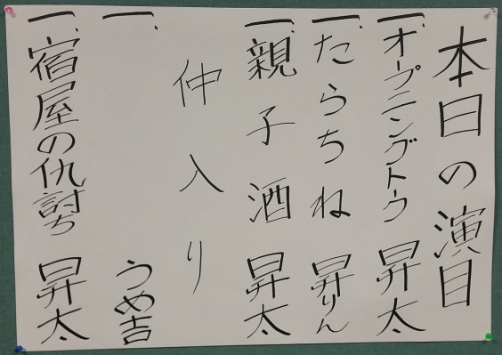 本日の演目
一、オープニングトーク 昇太
一、たらちね 昇りん
一、親子酒 昇太
仲入り
一、 うめ吉
一、宿屋の仇討ち 昇太